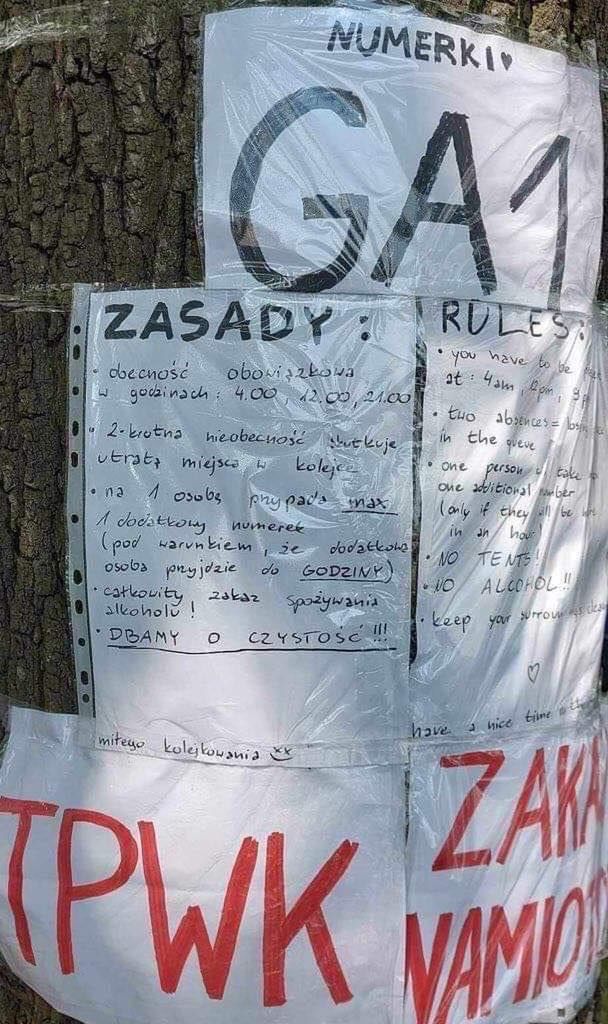 NUMERKI♥
GA1
ZASADY :
• obecność obowiązkowa
w godzinach : 4.00, 12.00, 21.00
• 2-krotna nieobecność skutkuje
utratą miejsca w kolejce
• na 1 osobę przypada max
1 dodatkowy numerek
(pod warunkiem, że dodatkowa
osoba przyjdzie do GODZINY)
• całkowity zakaz spożywania
alkoholu !
• DBAMY O CZYSTOŚĆ !!!
miłego kolejkowania xx
RULES:
• you have to be
at : 4am, 12pm, 9pm
• two absences =
in the queue
• one person take
one additional number
(only if they will be
in an hour)
• NO TENTS!
• NO ALCOHOL !!
• keep your
♡
have a nice time
TPWK
ZAKA
NAMIO